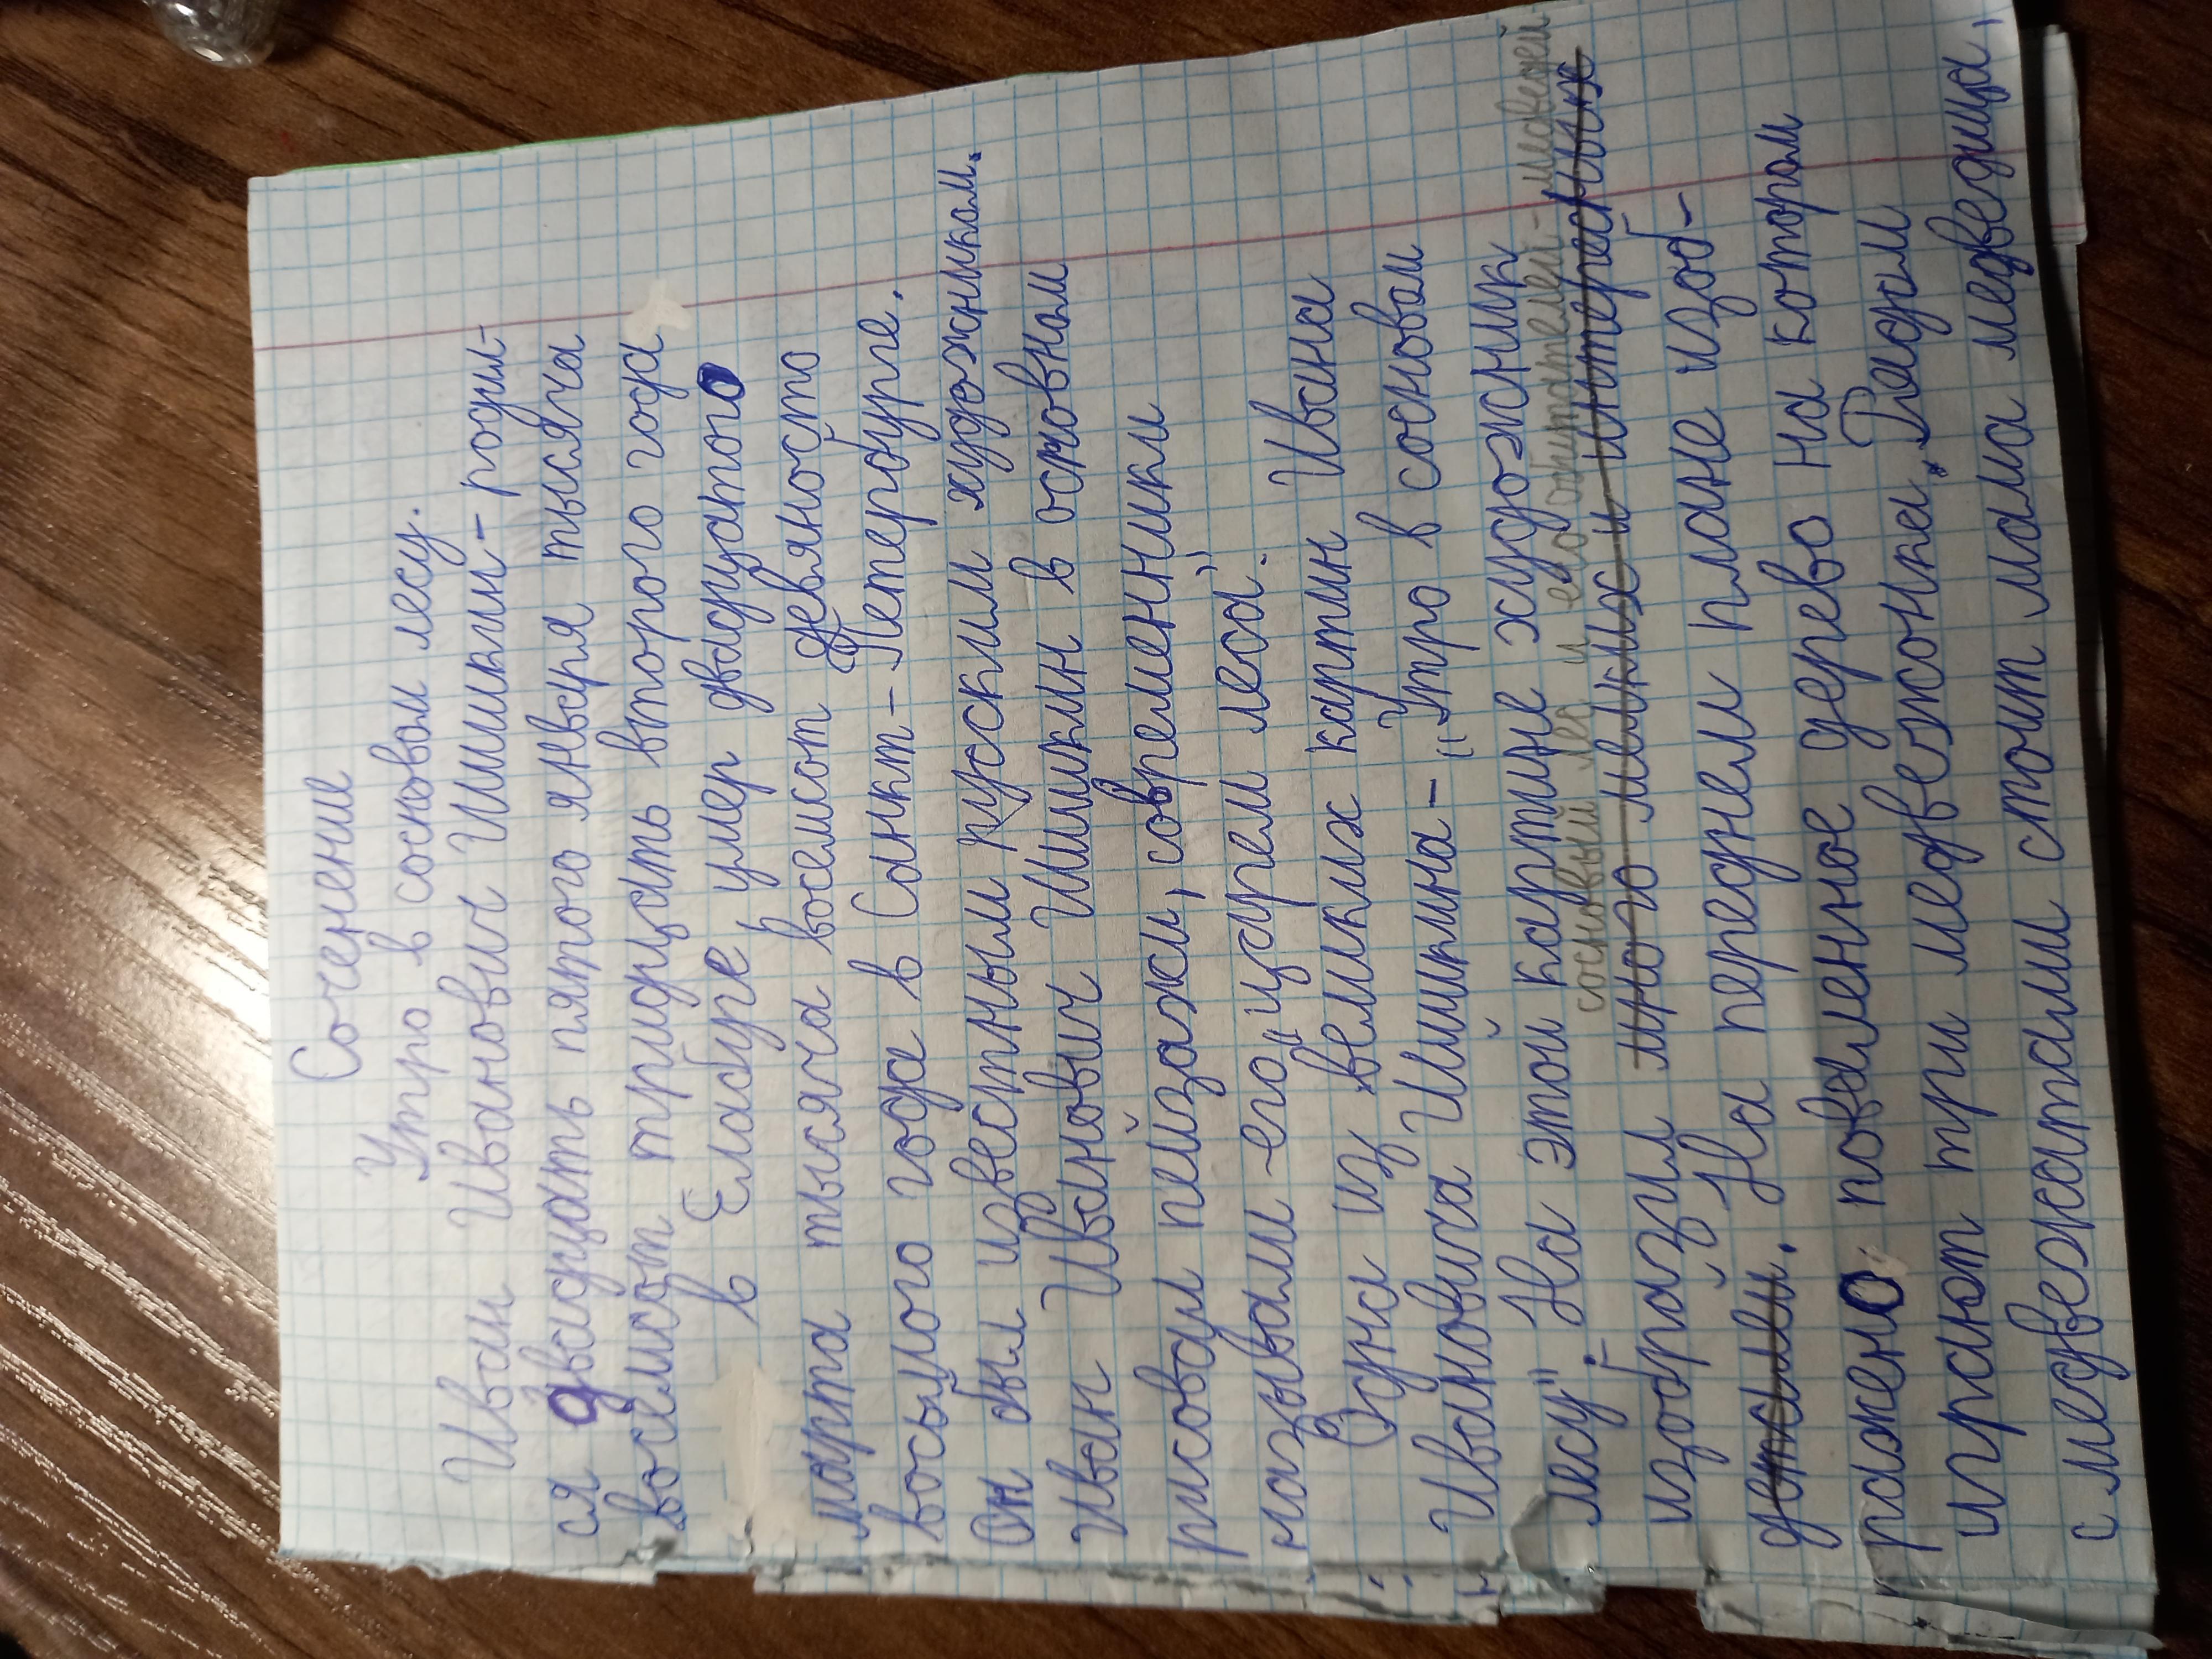 Сочинение
Утро в сосновом лесу.
Иван Иванович Шишкин - родил-
ся двадцать пятого января тысяча
восемсот тридцать второго года
в Елабуге, умер двадцатого
марта тысяча восемсот девяносто
восьмого года в Санкт-Петербурге.
Он был известным руским художником.
Иван Иванович Шишкин в основном
рисовал пейзажи, современники
называли его "царём леса".
Одна из великих картин Ивана
Ивановича Шишкина - "Утро в сосновом
лесу". На этой картине художник
сосновый лес и его обитателей - медведей
изобразил много мелких и интересных
деталей. На переднем плане изоб-
ражено поваленное дерево на котором
играют три медвежонка. Рядом
с медвежатами стоит мама медведица,